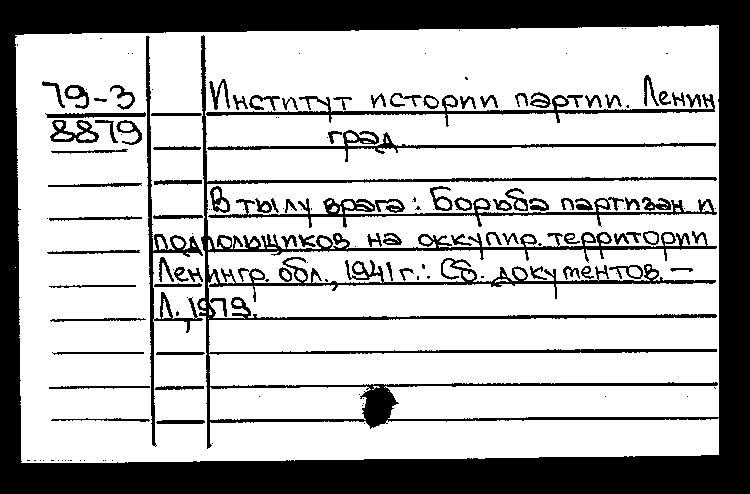 79-3
8879
Институт истории партии. Ленин
град
В тылу врага: Борьба партизан и
подпольщиков на оккупир. территории
Ленингр. обл., 1941 г.: Сб. документов. –
Л., 1979.